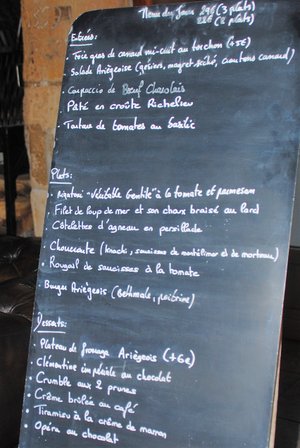 Menu du jour 29€ (3 plats)
22€ (2 plats)
Entrées:
- Foie gras de canard mi-cuit au torchon (+5€)
- Salade Ariégeoise (gésiers, magret séché, croutons canard)
- Carpaccio de Bœuf Charolais
- Pâté en croûte Richelieu
- Tartare de tomates au basilic
Plats:
- Rigatoni "Véritable Gentile" à la tomate et parmesan
- Filet de loup de mer et son choux braisé au lard
- Côtelettes d'agneau en persillade
- Choucroute (knacki, saucisses de montbéliard et de morteau)
- Rougail de saucisses à la tomate
- Burger Ariégeois (Bethmale, poitrine)
Desserts:
- Plateau de fromage Ariégeois (+6€)
- Clémentine impériale au chocolat
- Crumble aux 2 prunes
- Crème brûlée au café
- Tiramisu à la crème de marron
- Opéra au chocolat